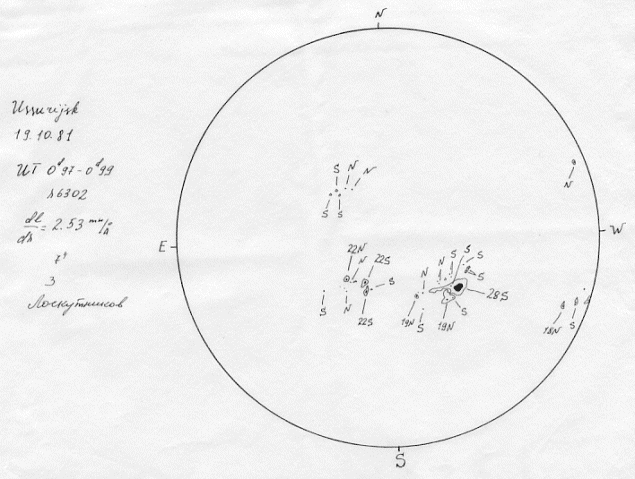 N
Ussurijsk
19.10.81
UT 0ᵈ97-0ᵈ99
λ6302
dl/dλ = 2.53 mm/Å
3
Лоскутников
E
W
S
S N N
S S
N
22N N 22S
S
S N 22S
N N S S S
S
28S
19N S 19N S
18N S